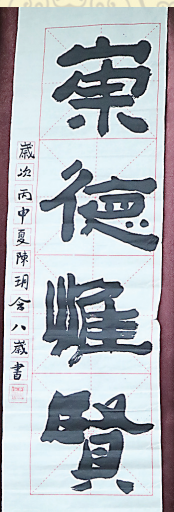 崇德雅賢
歲次丙申夏陳玥含八歲書